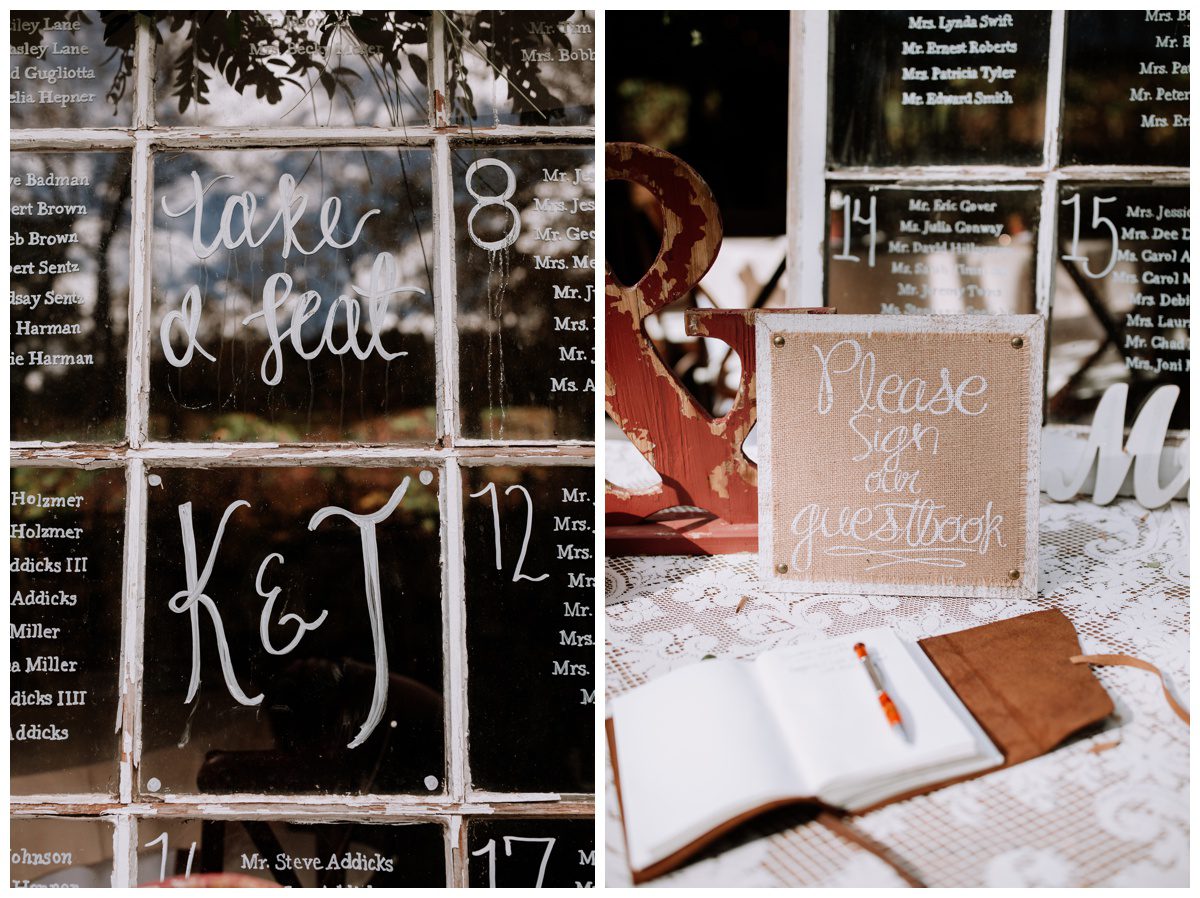 Riley Lane
Paisley Lane
Gugliotta
Hepner
Mr. Tim
Mrs. Bobb
Badman
Brown
Brown
Sentz
Sentz
Harman
Harman
take
a seat
8
Mr. Je
Mrs. Jes
Mr. Geo
Mrs. Me
Mr. J
Mrs.
Mr. J
Ms. A
Holzmer
Holzmer
Addicks III
Addicks
Miller
Miller
Addicks IIII
Addicks
K & J
12
Mr.
Mrs.
Mrs.
Mr.
Mrs.
Mrs.
Johnson
Mr. Steve Addicks
17
Mrs. Lynda Swift
Mr. Ernest Roberts
Mrs. Patricia Tyler
Mr. Edward Smith
Mrs. Pat
Mr. Peter
Mrs. Eri
14
Mr. Eric Gover
Ms. Julia Conway
Mr. David
15
Mrs. Jessic
Mrs. Dee D
Ms. Carol A
Ms. Carol M
Mrs. Debi
Mrs. Lauri
Mr. Chad
Mrs. Joni M
&
Please
sign
our
guestbook
M